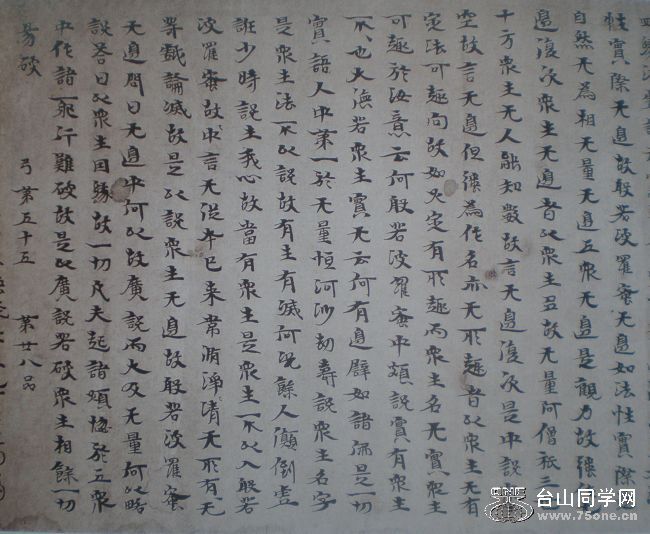 性實際无邊故般若波羅蜜无邊如法性實際
自然无為相无量无邊五眾无邊是觀力故強
邊復次眾生无邊者以眾生多故无量阿僧祇三
十方眾生无人能知數故言无邊復次是中說
空故言无邊但強為作名亦无所趣者以眾生无有
定法可趣向故如火定有所趣而眾生名无實眾生
可趣於汝意云何般若波羅蜜中頗說實有眾生
不不也大德若眾生實无云何有邊譬如諸佛是一切
實語人中第一於无量恒河沙劫壽說眾生名字
是眾生法不以說故有生有滅何況餘人顛倒虛
誑少時說生我心故當有眾生是眾生不以入般若
波羅蜜故中言无從本已來常清淨清无所有无
等戲論滅故是以說眾生无邊故般若波羅蜜
无邊問曰无邊中何以故廣說而大及无量何以略
說答曰以眾生因緣故一切凡夫起諸煩惱於五眾
中作諸邪行難破故是以廣說若破眾生相餘一切
易破 弓第五十五 第廿八品
台山同学网
www.75one.cn